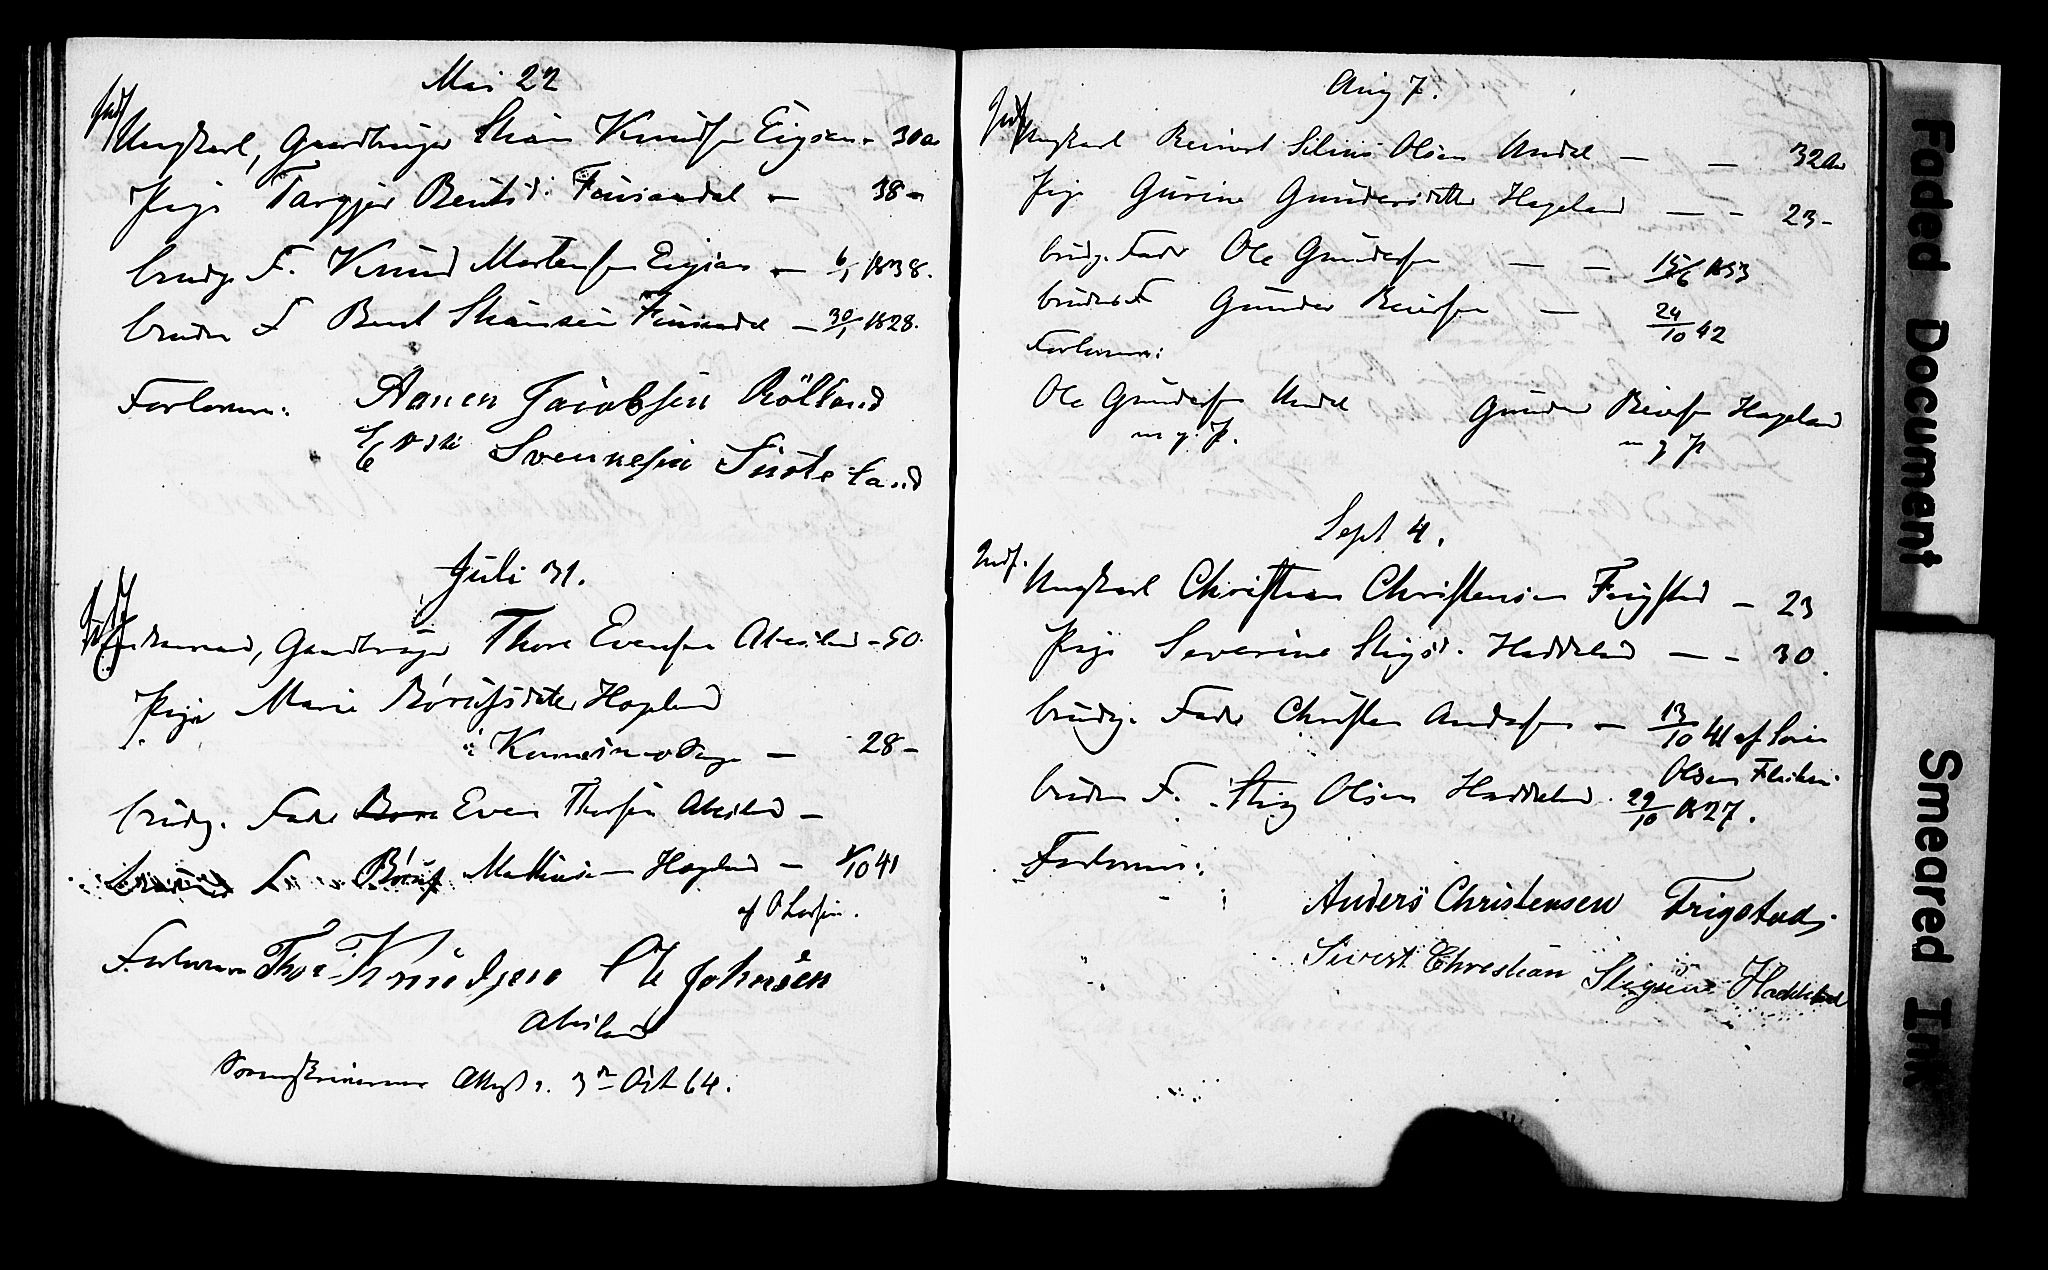 Mai 22
Indf
Ungkarl, Gaardbruger Stian Knudsen Eigsaa - 30 a
Pige Targjer Bentsd. Finsaadal - 38 -
brudg. F. Knud Mortensen Eigsaa - 6/1 1838.
bruden F Bent Stiansen Finsaadal - 30/1 1828.
Forlovere: Aanen Jacobsen Röiland
Svennesen
Juli 31.
Indf
Enkemand, Gaardbruger Thore Evensen Abesland - 50.
Pige Marie Börufsdatter Hageland
28 -
brudg. Fader Even Thorsen Abesland -
Böruf Mathiesen Hageland - 1/10 41
af O Larsen.
Forlovere Thore Knudsen Ole Johnsen
Abesland
Sorenskriverens Attest d. 3 Oct 64.
Aug 7.
Indf
Ungkarl Reinert Silius Olsen Undal - - 32 Aar
Pige Gurine Gundersdatter Hageland - - 23 -
brudg. Fader Ole Gundersen - - 15/6 1853
brudens F Gunder Reiersen - 24/10 42
Forlovere:
Ole Gundersen Undal Gunder Reiersen Hageland
m. p. P. m p P
Sept 4.
Indf.
Ungkarl Christian Christensen Frigstad - 23
Pige Severine Stigsd. Haddeland - - 30.
brudg. Fader Christen Andersen - 13/10 41 af
Olsen
bruden F. Stig Olsen Haddeland. 29/10 1827.
Forlovere:
Anders Christensen Frigstad.
Sivert Christian Stigsen Haddeland
Faded Document
Smeared Ink